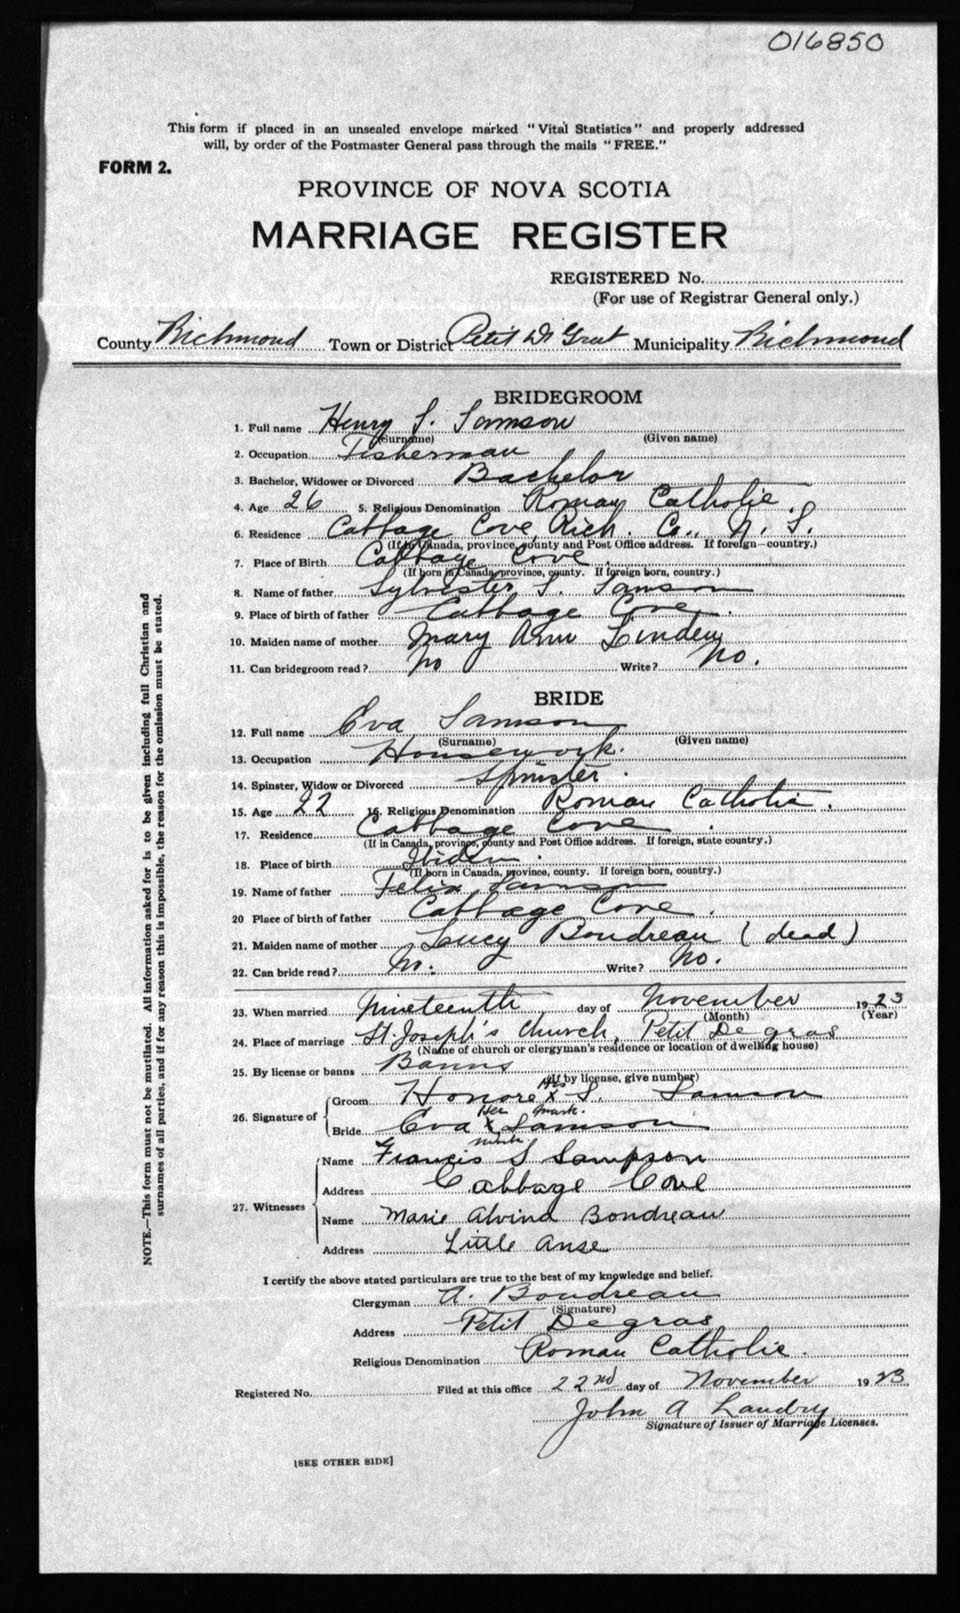 016850
This form if placed in an unsealed envelope marked "Vital Statistics" and properly addressed
will, by order of the Postmaster General pass through the mails "FREE."
FORM 2.
PROVINCE OF NOVA SCOTIA
MARRIAGE REGISTER
REGISTERED No.
(For use of Registrar General only.)
County Richmond Town or District Petit De Grat Municipality Richmond
BRIDEGROOM
1. Full name Henry S. Samson
(Surname) (Given name)
2. Occupation Fisherman
3. Bachelor, Widower or Divorced Bachelor
4. Age 26 5. Religious Denomination Roman Catholic.
6. Residence Cabbage Cove, Rich. Co., N. S.
(If in Canada, province, county and Post Office address. If foreign—country.)
7. Place of Birth Cabbage Cove.
(If born in Canada, province, county. If foreign born, country.)
8. Name of father Sylvester S. Samson
9. Place of birth of father Cabbage Cove.
10. Maiden name of mother Mary Ann Linden
11. Can bridegroom read? No Write? No.
BRIDE
12. Full name Eva Samson
(Surname) (Given name)
13. Occupation Housework.
14. Spinster, Widow or Divorced Spinster.
15. Age 22 16. Religious Denomination Roman Catholic.
17. Residence Cabbage Cove.
(If in Canada, province, county and Post Office address. If foreign, state country.)
18. Place of birth Ibidem.
(If born in Canada, province, county. If foreign born, country.)
19. Name of father Felix Samson
20 Place of birth of father Cabbage Cove.
21. Maiden name of mother Lucy Boudreau (dead)
22. Can bride read? No. Write? No.
23. When married Nineteenth day of November 1923
(Month) (Year)
24. Place of marriage St Joseph's Church, Petit De gras
(Name of church or clergyman's residence or location of dwelling house)
25. By license or banns Banns
(If by license, give number)
26. Signature of
Groom Honore His X mark. S. Samson
Bride Eva Her X mark. Samson
27. Witnesses
Name Francis S Sampson
Address Cabbage Cove
Name Marie Alvina Boudreau
Address Little Anse
I certify the above stated particulars are true to the best of my knowledge and belief.
Clergyman A. Boudreau
(Signature)
Address Petit Degras
Religious Denomination Roman Catholic.
Registered No. Filed at this office 22nd day of November 1923
John A Landry
Signature of Issuer of Marriage Licenses.
[SEE OTHER SIDE]
NOTE.—This form must not be mutilated. All information asked for is to be given including full Christian and
surnames of all parties, and if for any reason this is impossible, the reason for the omission must be stated.